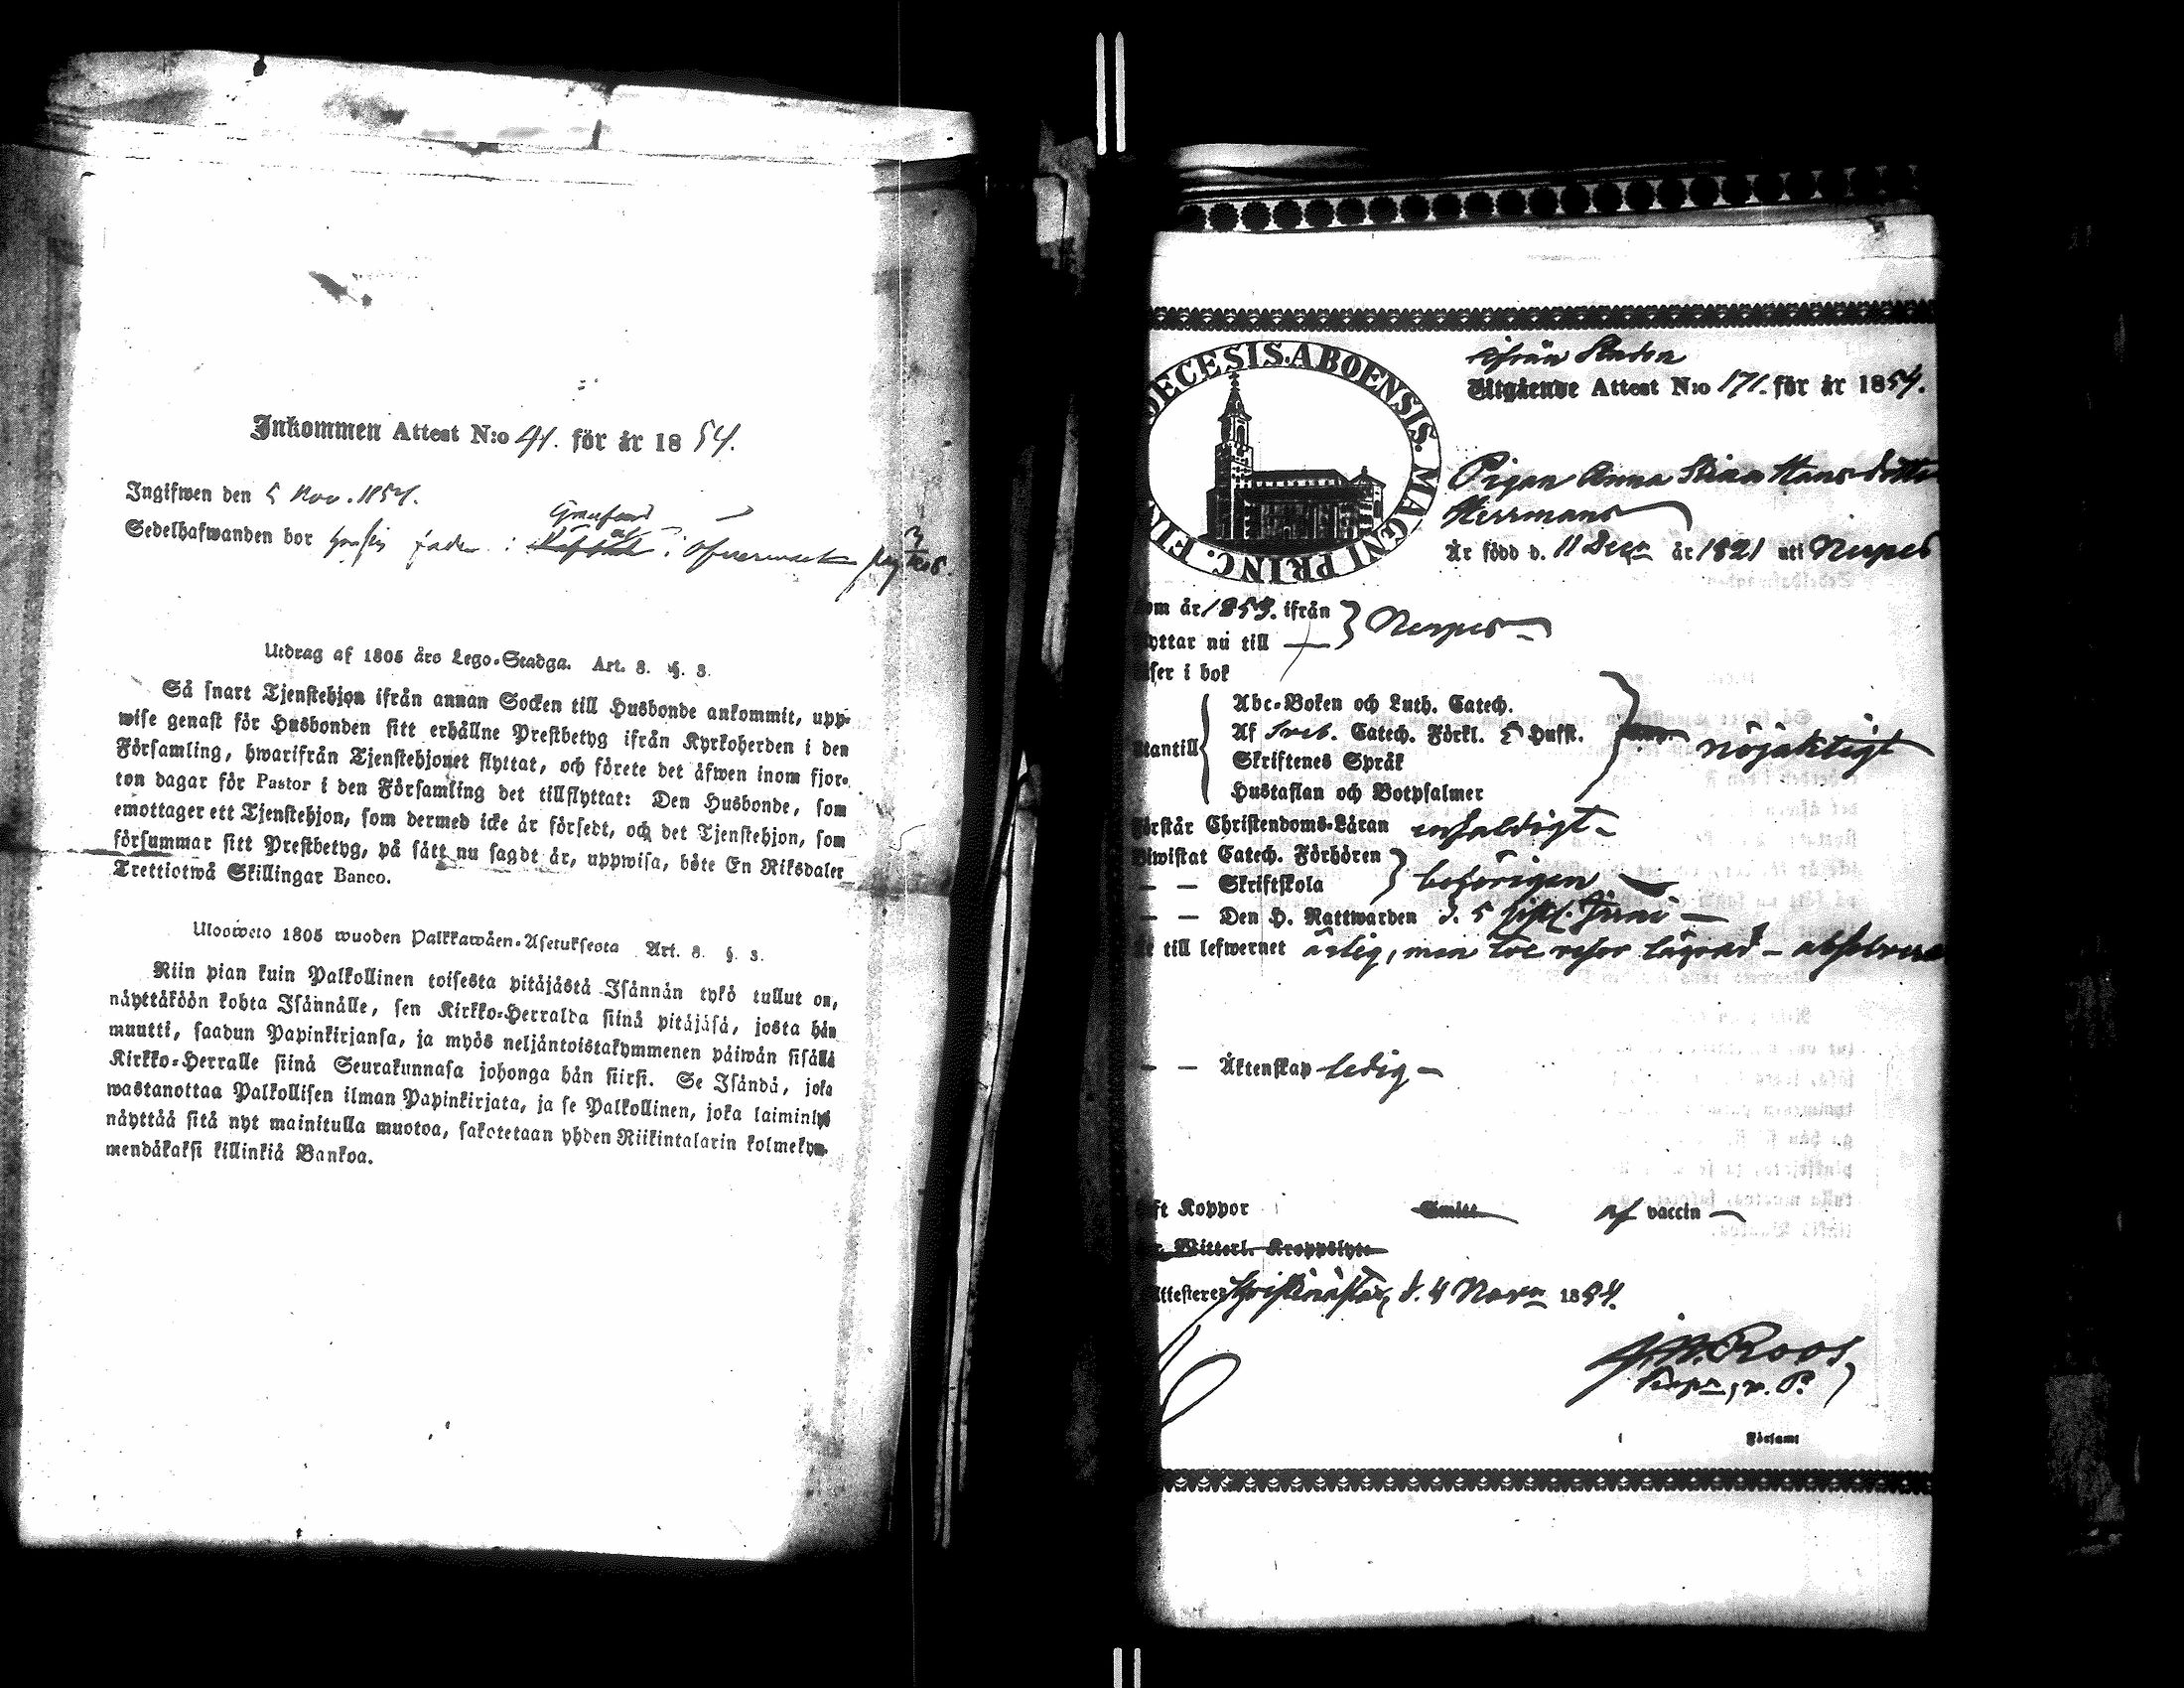 Inkommen Attest N:o 41. för år 1854.
Ingifwen den 5 Nov. 1854.
Sedelhafwanden bor hos sin fader i
Utdrag af 1805 års Lego-Stadga. Art. 8. §. 3.
Så snart Tjenstehjon ifrån annan Socken till Husbonde ankommit, upp-
wise genast för Husbonden sitt erhållne Prestbetyg ifrån Kyrkoherden i den
Församling, hwarifrån Tjenstehjonet flyttat, och förete det äfwen inom fjor-
ton dagar för Pastor i den Församling det tillflyttat: Den Husbonde, som
emottager ett Tjenstehjon, som dermed icke är försedt, och det Tjenstehjon, som
försummar sitt Prestbetyg, på sätt nu sagdt är, uppwisa, böte En Riksdaler
Trettiotwå Skillingar Banco.
Ulosweto 1805 wuoden Palkkawäen-Asetuksesta Art. 8. §. 3.
Niin pian kuin Palkollinen toisesta pitäjästä Isännän tykö tullut on,
näyttäköön kohta Isännälle, sen Kirkko-Herralda siinä pitäjäsä, josta hän
muutti, saadun Papinkirjansa, ja myös neljäntoistakymmenen päiwän sisällä
Kirkko-Herralle siinä Seurakunnasa johonga hän siirsi. Se Isändä, joka
wastanottaa Palkollisen ilman Papinkirjata, ja se Palkollinen, joka laiminlyö
näyttää sitä nyt mainitulla muotoa, sakotetaan yhden Riikintalarin kolmekym-
mendäkaksi killinkiä Bankoa.
DECESIS.ABOENSIS. MAGNI PRINC. FIN
ifrån Staden
Utgående Attest N:o 171. för år 1854.
Pigan Anna Stina Hansdotter
Herrmans
Är född d. 11 Dec. år 1821 uti Nerpes
om år 1853. ifrån } Nerpes
yttar nu till —
ser i bok
Abc-Boken och Luth. Catech.
Af Sveb. Catech. Förkl. 5 Hufst.
tantill Skriftenes Språk nöjaktigt
Hustaflan och Botpsalmer
örstår Christendoms-Läran enfaldigt
iwistat Catech. Förhören } behörigen
— — Skriftskola
— — Den H. Nattwarden d. 5 sistl. Juni —
r till lefwernet ärlig, men tve resor lägrad — absolverad
— — Äktenskap ledig —
ft Koppor Smitt af vaccin
Witterl. Kroppslyte
ttesteres Christinæstad, d. 4 Novr 1854.
Roos
Församl